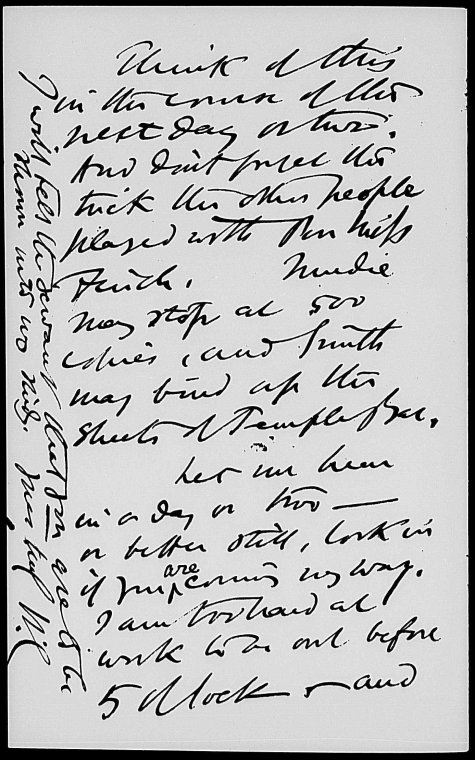 Think of this
in the course of the
next day or two.
And don't forget the
trick the other people
played with Poor Miss
Finch. Mudie
may stop at 500
copies, and Smith
may bind up the
sheets of Temple Bar.
Let me hear
in a day or two —
or better still, look in
if you are coming my way.
I am too hard at
work to be out before
5 o'clock — and
I will tell the servant that you are to be
shown into no